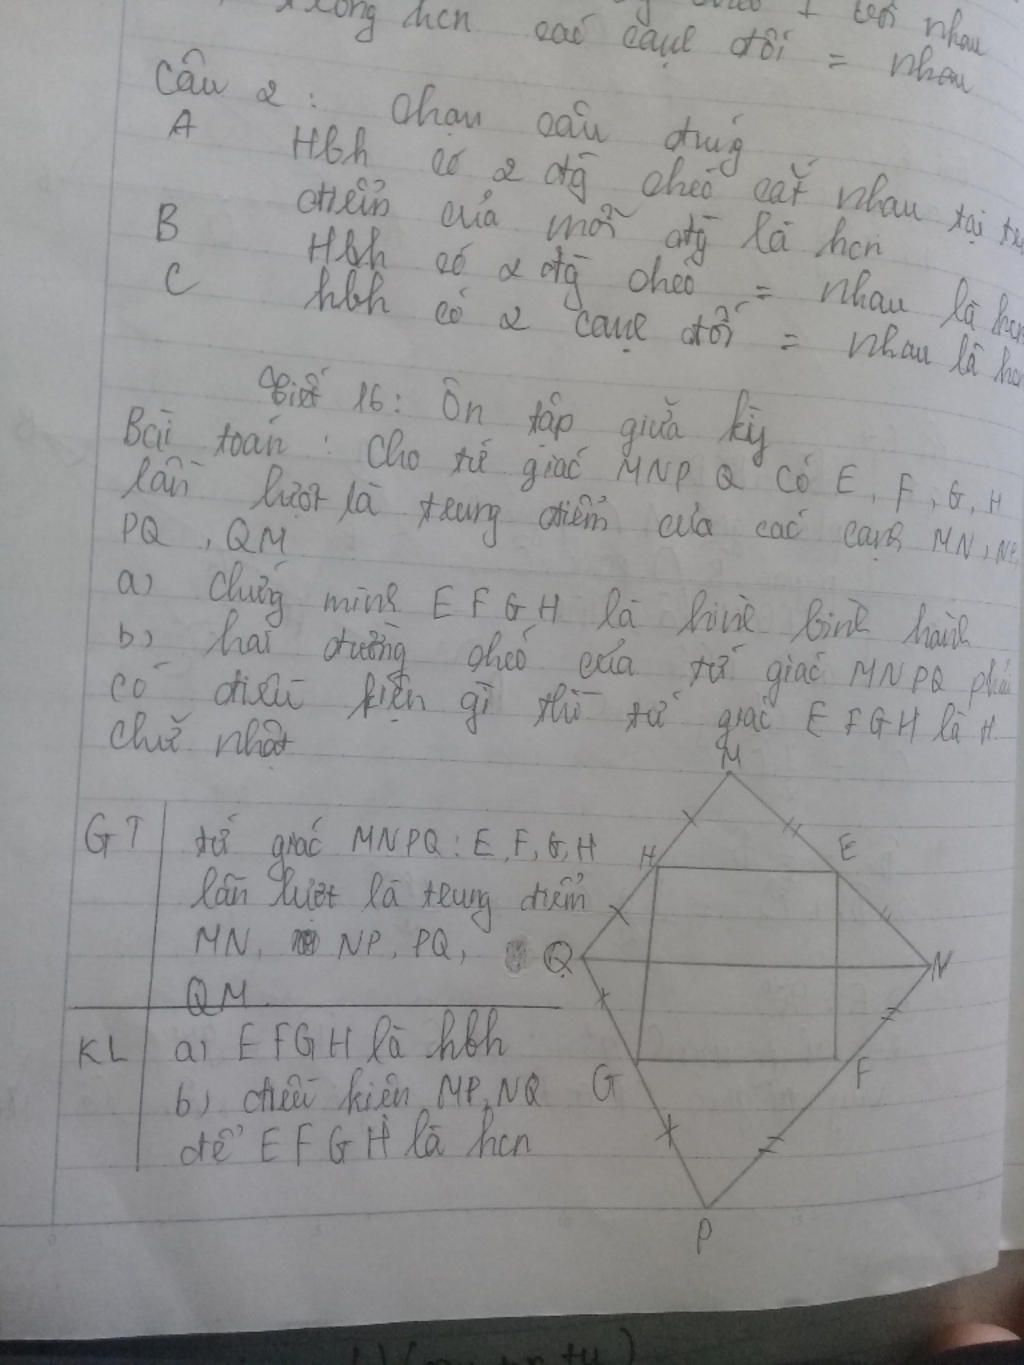 trong hcn các cạnh đối = nhau
Câu 2: chọn câu đúng
A Hbh có 2 đg chéo cắt nhau tại
điểm của mỗi đg là hcn
B Hbh có 2 đg chéo = nhau là hcn
C hbh có 2 cạnh đối = nhau là
Tiết 16: Ôn tập giữa kỳ
Bài toán: Cho tứ giác MNPQ Có E, F, G, H
lần lượt là trung điểm của các cạnh MN, NP,
PQ, QM
a) chứng minh EFGH là hình bình hành
b) hai đường chéo của tứ giác MNPQ phải
có điều kiện gì thì tứ giác EFGH là H.
chữ nhật
GT tứ giác MNPQ: E, F, G, H
lần lượt là trung điểm
MN, NP, PQ,
QM
KL a) EFGH là hbh
b) điều kiện MP, NQ
để EFGH là hcn
M
H E
Q N
G F
P